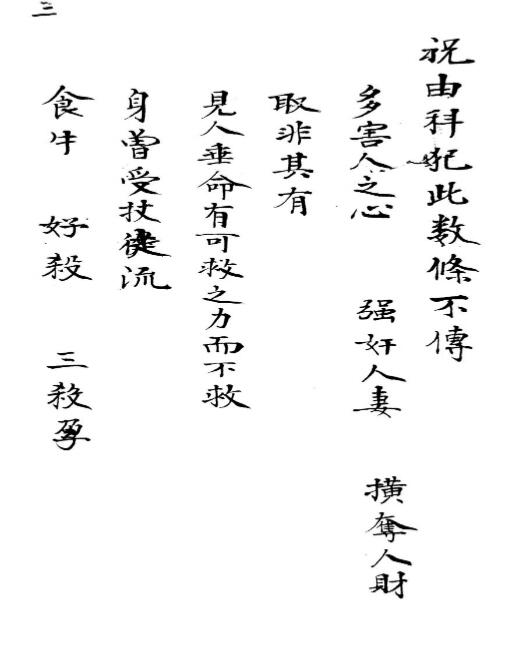 祝由科犯此数條不傳
多害人之心 强奸人妻 横奪人財
取非其有
見人垂命有可救之力而不救
身曾受杖徒流
食牛 好殺 三殺孕
三